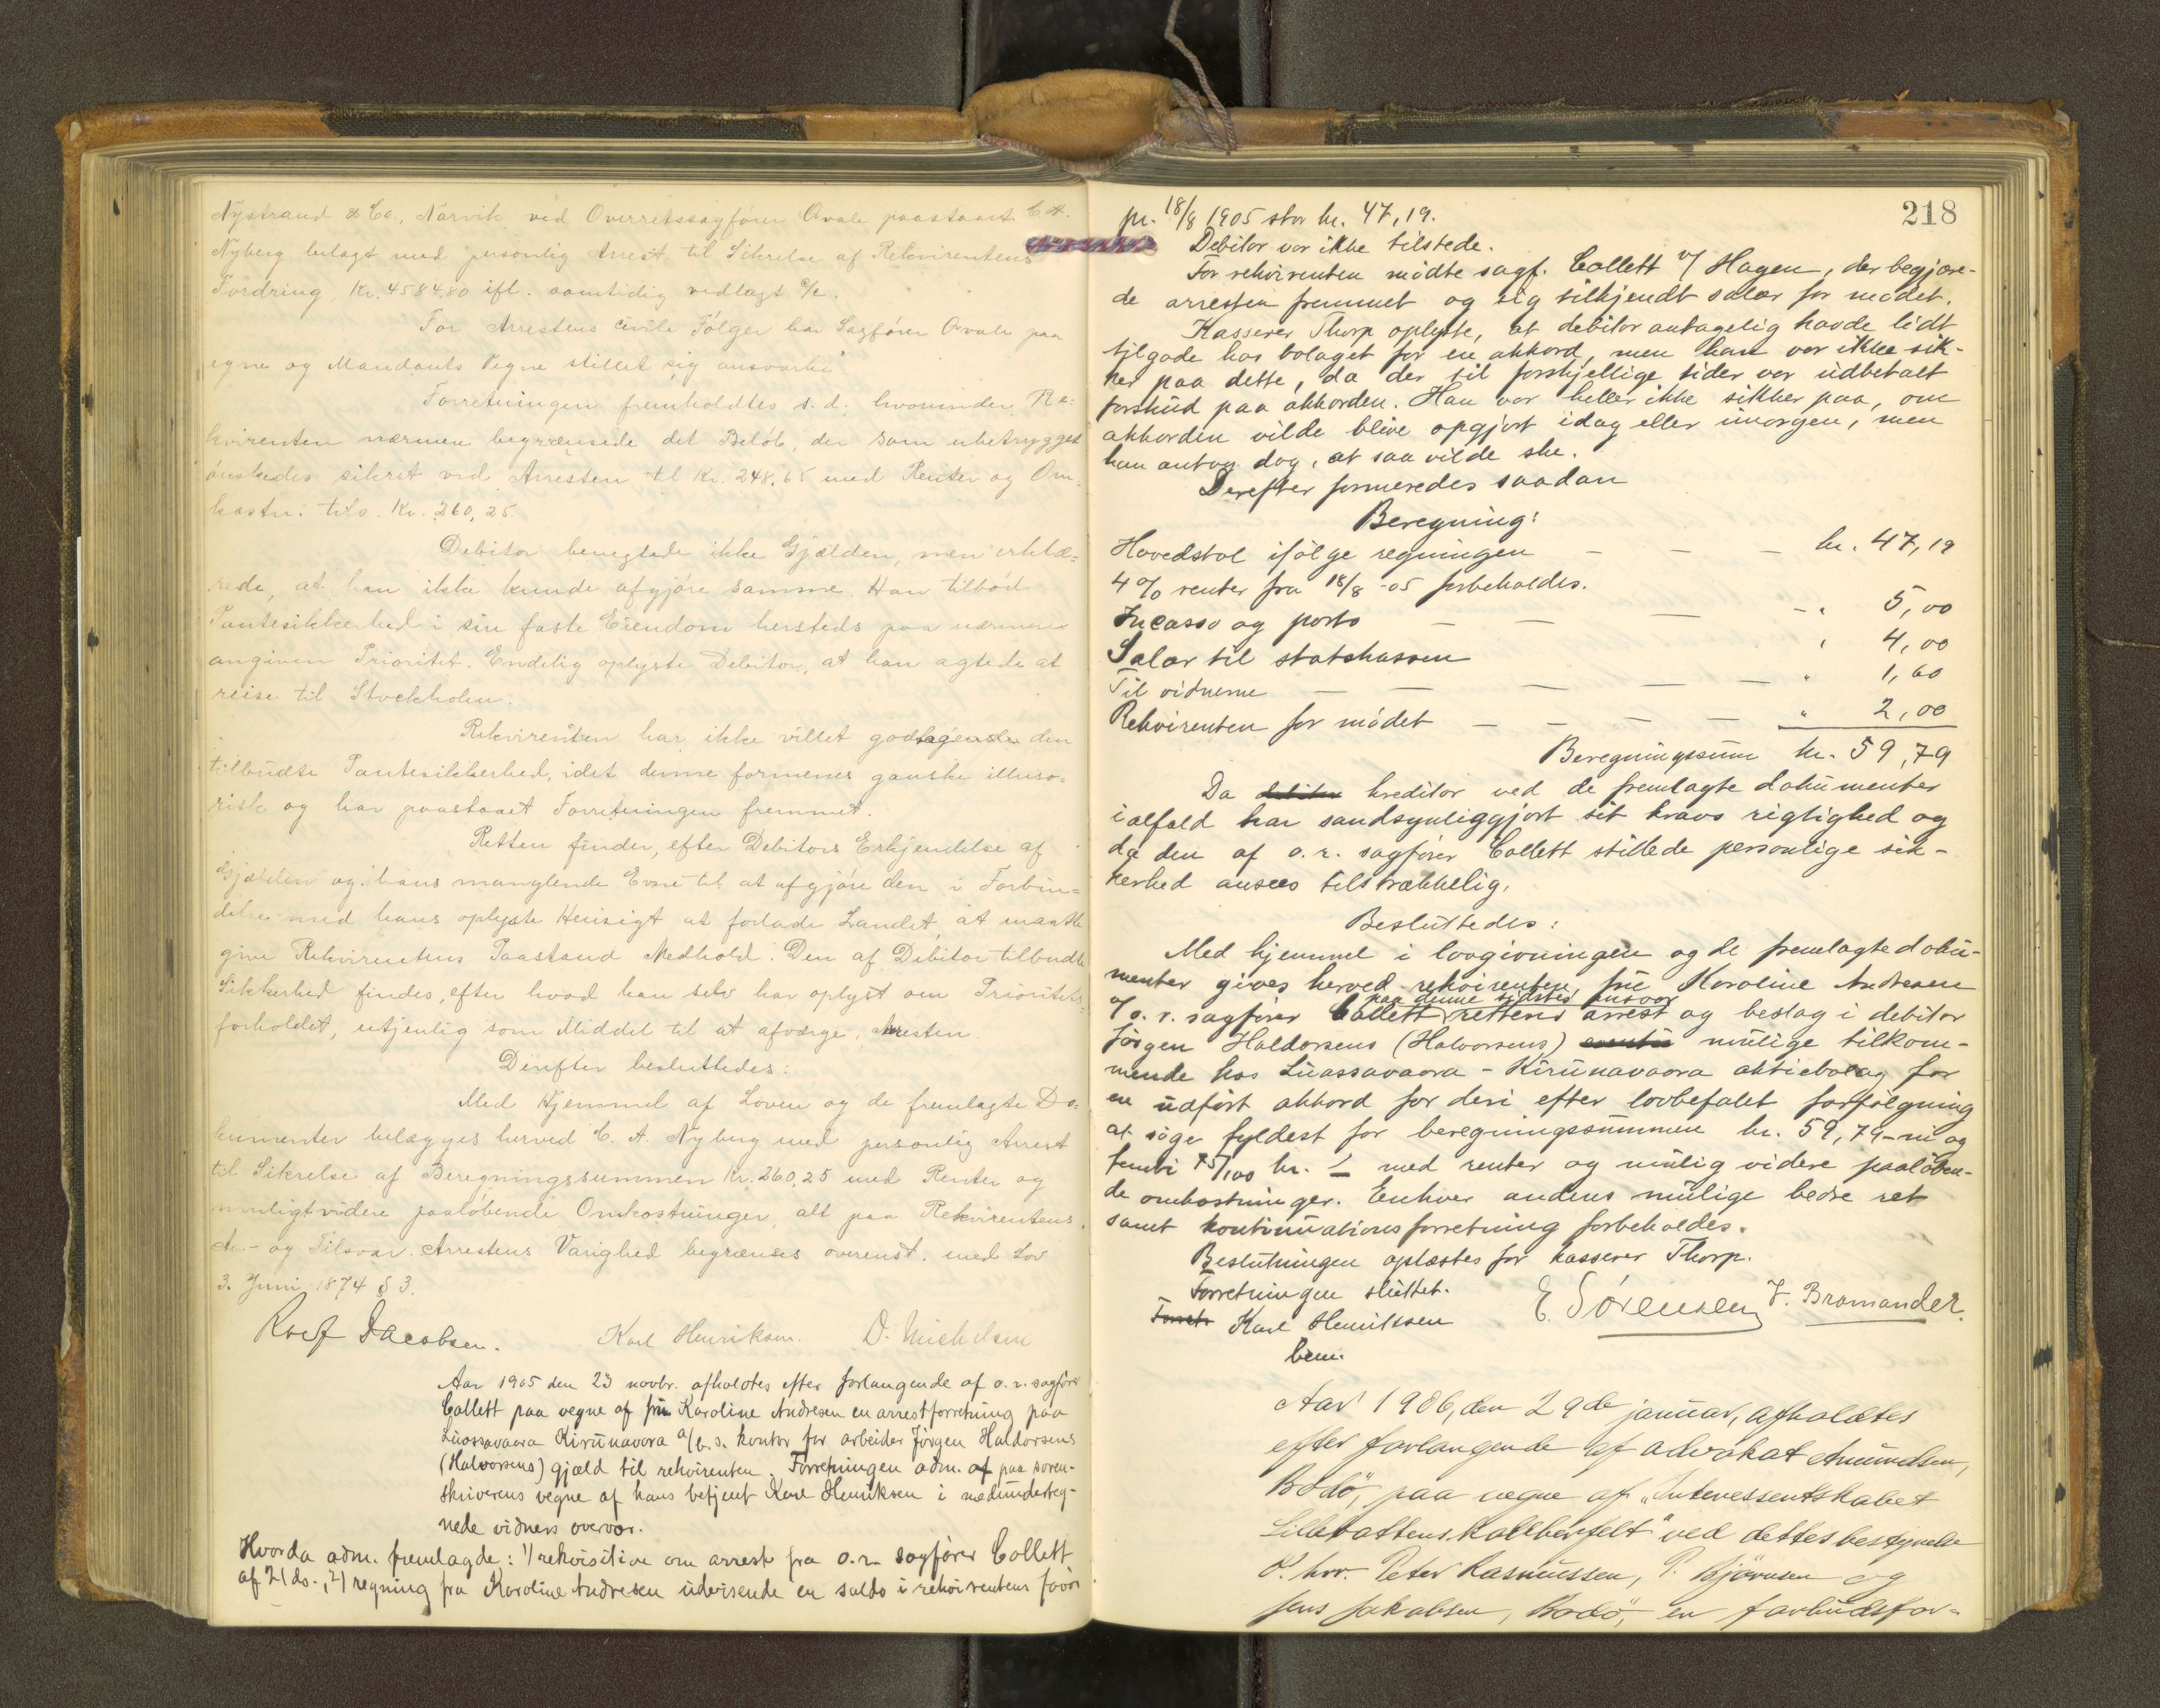 Nystrand & Co., Narvik ved Overretssagfører Qvale paastaaet C. A.
Nyberg belagt med personlig Arrest til Sikrelse af Rekvirentens
Fordring, Kr. 4584,80 ifl. samtidig vedlagt c/c.
For Arrestens civile Følger har Sagfører Qvale paa
egne og Mandants Vegne stillet sig ansvarlig
Forretningen fremholdtes s. d., hvorunder Re-
kvirenten nærmere begrænsede det Beløb, der som ubetrygget
ønskedes sikret ved Arresten til Kr. 248,65 med Renter og Om-
kostn: tils. Kr. 260,25.
Debitor benegtede ikke Gjælden, men erklæ-
rede, at han ikke kunde afgjøre samme. Han tilbød
Pantesikkerhed i sin faste Eiendom hersteds paa nærmere
angiven Prioritet. Endelig oplyste Debitor, at han agtede at
reise til Stockholm.
Rekvirenten har ikke villet godtage den
tilbudte Pantesikkerhed, idet denne formenes ganske illuso-
risk og har paastaaet Forretningen fremmet.
Retten finder, efter Debitors Erkjendelse af
Gjælden og hans manglende Evne til at afgjøre den i Forbin-
delse med hans oplyste Hensigt at forlade Landet, at maatte
give Rekvirentens Paastand Medhold. Den af Debitor tilbudte
Sikkerhed findes, efter hvad han selv har oplyst om Prioritets-
forholdet, utjenlig som Middel til at afværge Arresten
Derefter besluttedes:
Med Hjemmel af Loven og de fremlagte Do-
kumenter belægges herved C. A. Nyberg med personlig Arrest
til Sikrelse af Beregningssummen Kr. 260,25 med Renter og
muligt videre paaløbende Omkostninger, alt paa Rekvirentens
An- og Tilsvar. Arrestens Varighed begrænses overenst. med Lov
3. Juni 1874 § 3.
Rolf Jacobsen. Karl Henriksen. D. Michelsen
Aar 1905 den 23 novbr. afholdtes efter forlangende af o. r. sagfører
Collett paa vegne af fru Karoline Andresen en arrestforretning paa
Luossavaara Kirunavara a/b.s. kontor for arbeider Jörgen Haldorsens
(Halvorsens) gjæld til rekvirenten. Forretningen adm. af paa soren-
skriverens vegne af hans betjent Karl Henriksen i nedunderteg-
nede vidners overvær.
Hvorda adm. fremlagde: 1) rekvisition om arrest fra o.r. sagfører Collett
af 21 ds., 2) regning fra Karoline Andresen udvisende en saldo i rekvirentens favör
218
pr. 18/8 1905 stor kr. 47,19.
Debitor var ikke tilstede.
For rekvirenten mödte sagf. Collett v/ Hagen, der begjære-
de arresten fremmet og sig tilkjendt salær for mödet.
Kasserer Thorp oplyste, at debitor antagelig havde lidt
tilgode hos bolaget for en akkord, men han var ikke sik-
ker paa dette, da der til forskjellige tider var udbetalt
forskud paa akkorden. Han var heller ikke sikker paa, om
akkorden vilde blive opgjort idag eller imorgen, men
han antog dog, at saa vilde ske.
Derefter formeredes saadan
Beregning:
Hovedstol ifölge regningen — — — kr. 47,19
4 % renter fra 18/8 -05 forbeholdes.
Incasso og porto — — — - " 5,00
Salær til statskassen " 4,00
Til vidnerne — — — — — " 1,60
Rekvirenten for mödet — — — — " 2,00
Beregningssum kr. 59,79
Da debitor kreditor ved de fremlagte dokumenter
ialfald har sandsynliggjort sit kravs rigtighed og
da den af o. r. sagfører Collett stillede personlige sik-
kerhed ansees tilstrækkelig,
Besluttedes:
Med hjemmel i lovgivningen og de fremlagte doku-
menter gives herved rekvirenten, fru Karoline Andresen
paa denne sidstes ansvar
v/ o. r. sagfører Collett rettens arrest og beslag i debitor
Jörgen Haldorsens (Halvorsens) mulige tilkom-
mende hos Luassavaara - Kirunavaara aktiebolag for
en udført akkord for deri efter lovbefalet forfølgning
at söge fyldest for beregningssummen kr. 59,79 - ni og
femti 75/100 kr. - med renter og mulig videre paaløben-
de omkostninger. Enhver andens mulige bedre ret
samt kontinuationsforretning forbeholdes.
Beslutningen oplæstes for kasserer Thorp.
Forretningen sluttet.
Karl Henriksen E. Sörensen J. Bromander.
bem.
Aar 1906, den 29de januar, afholdtes
efter forlangende af advokat Amundsen,
Bodö, paa vegne af "Interessentskabet
ved dettes bestyrelse
d'hrr. Peter Rasmussen, P. Björnsen og
Jens Jakobsen, Bodö, en forbudsfor-